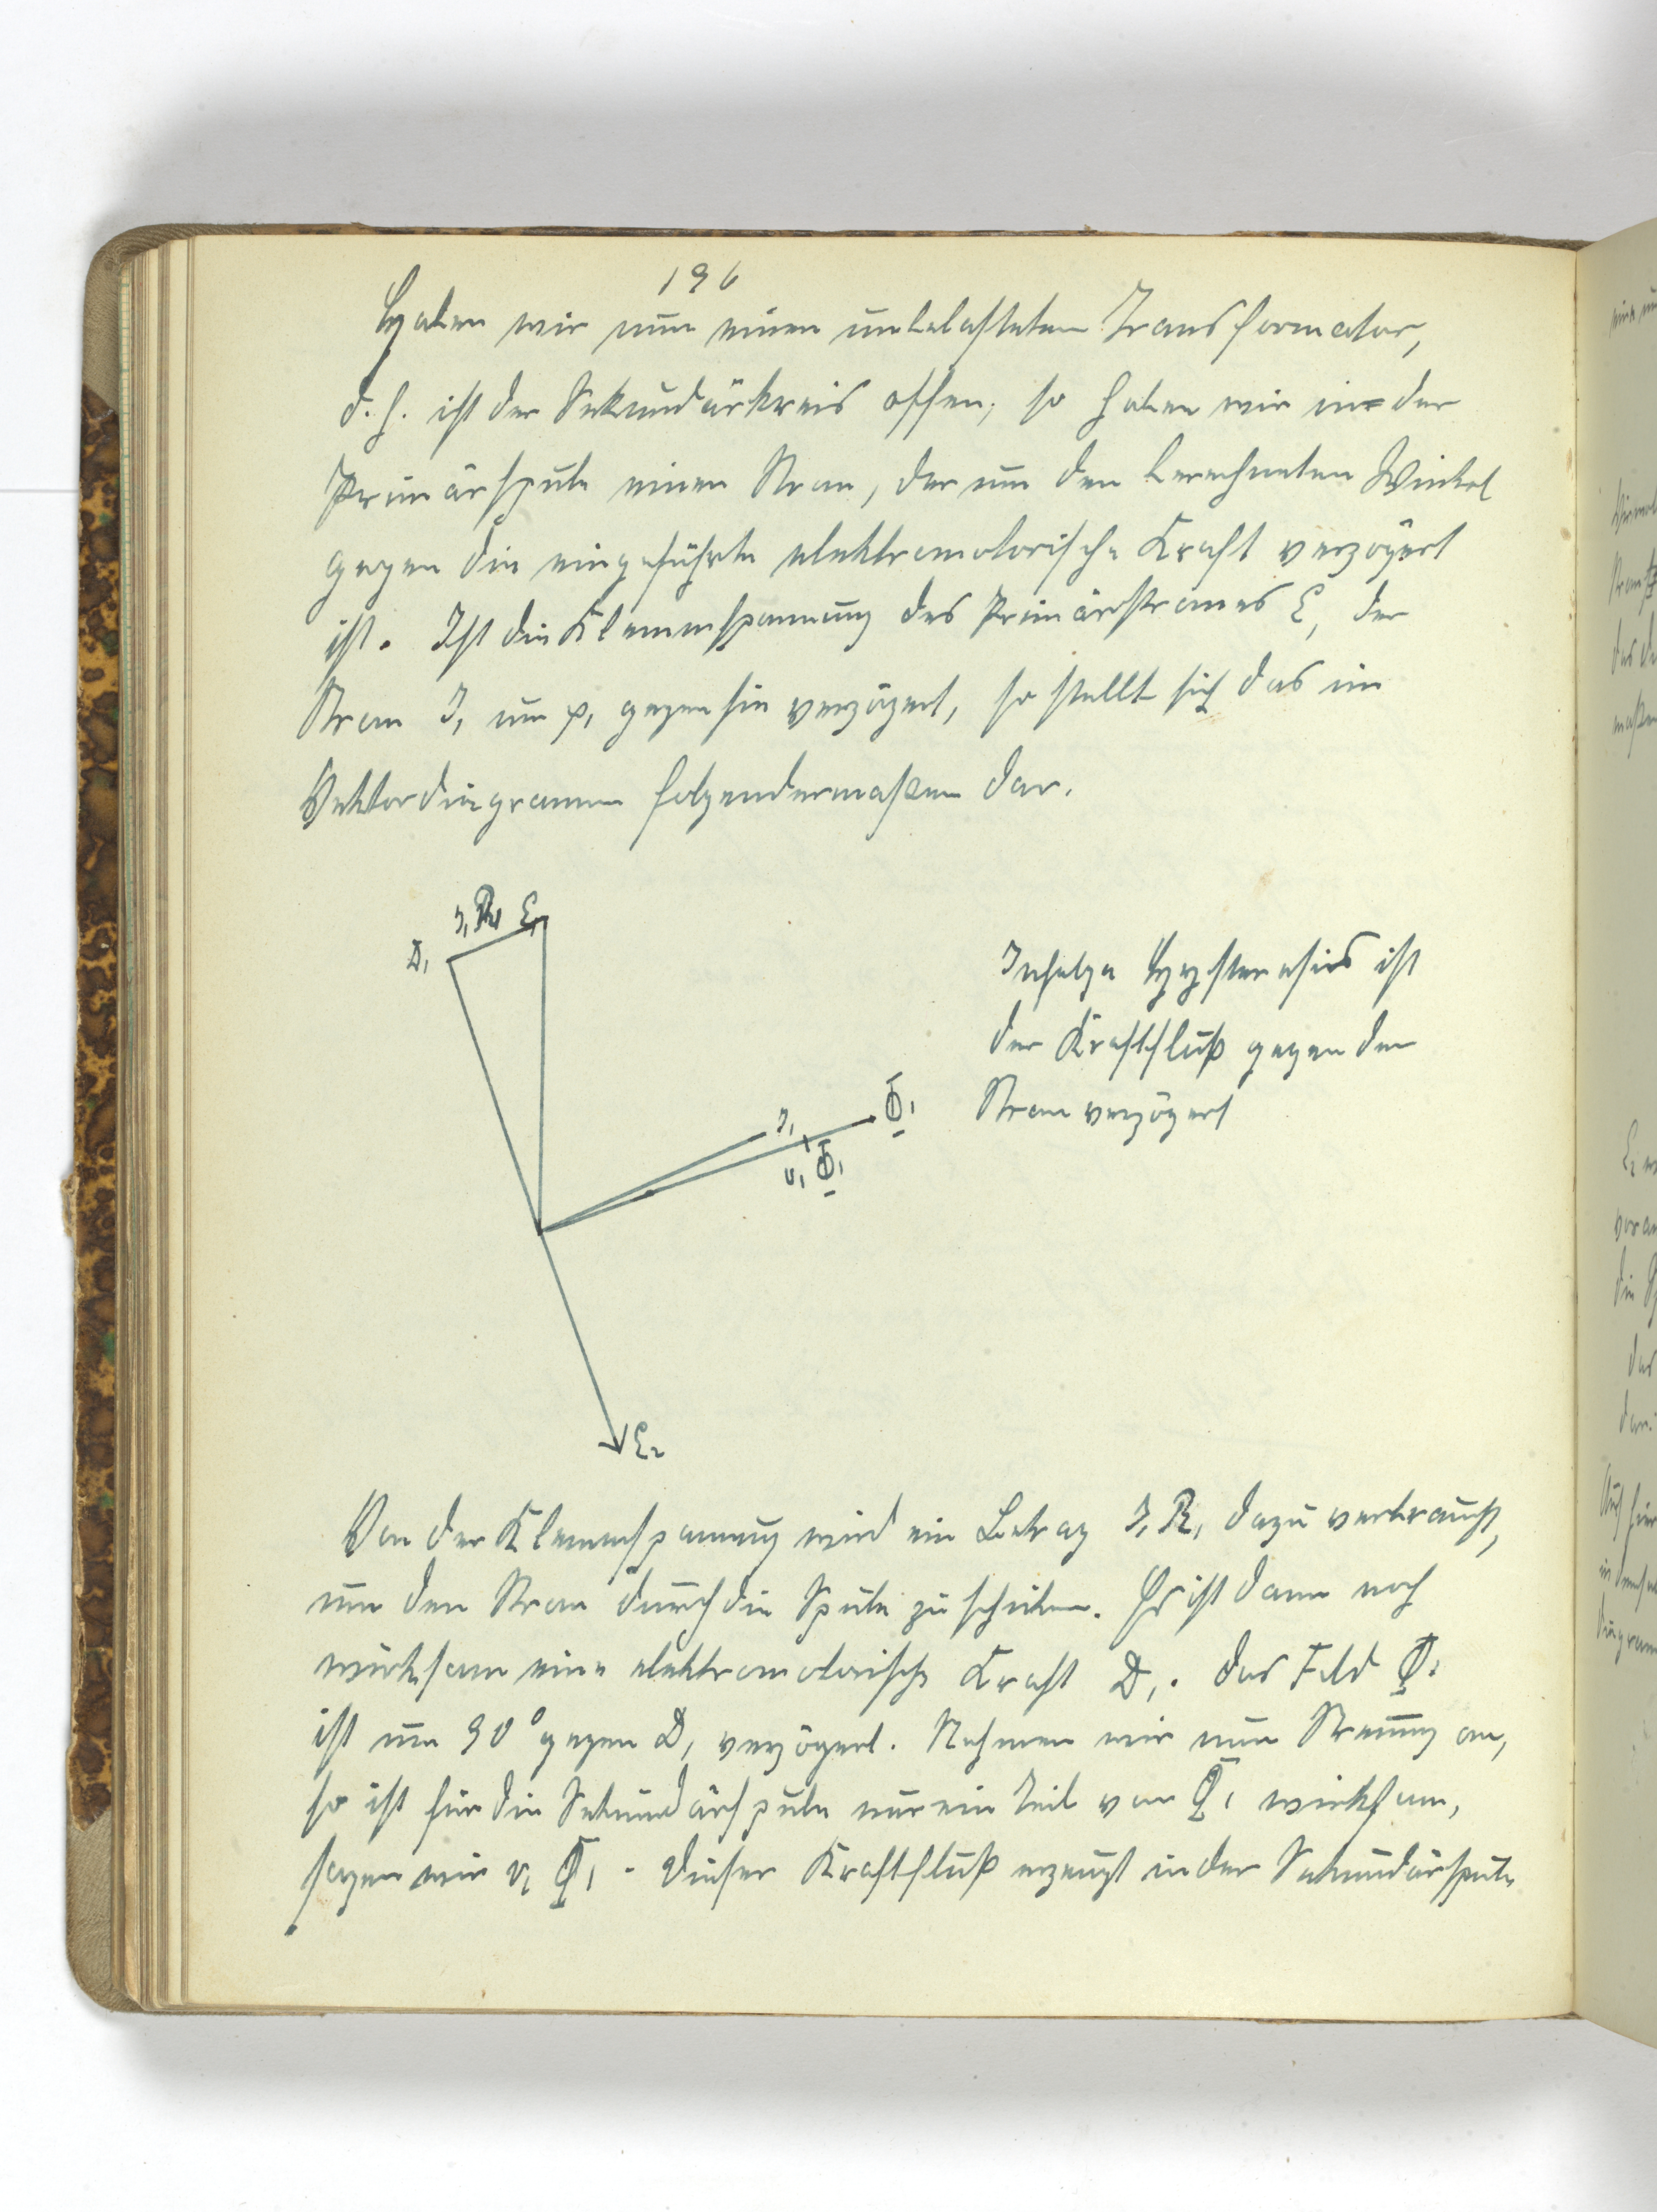 196
Haben wir nun einen unbelasteten Transformator,
d. h. ist der Sekundärkreis offen, so haben wir in der
Primärspule einen Strom, der um den berechneten Winkel
gegen die eingeführte elektromotorische Kraft verzögert
ist. Ist die Klemmspannung des Primärstromes E, der
Strom J₁ um φ₁ gegen sie verzögert, so stellt sich das im
Vektordiagramm folgendermaßen dar.
J₁R₁ E₁
D₁
Infolge Hysteresis ist
der Kraftfluß gegen den
Strom verzögert
J₁ Φ₁
v₁ Φ₁
E₂
Von der Klemmspannung wird ein Betrag J₁R₁ dazu verbraucht,
um den Strom durch die Spule zu schicken. Es ist dann noch
wirksam eine elektromotorische Kraft D₁. Das Feld Φ₁
ist um 90° gegen D₁ verzögert. Nehmen wir nun Streuung an,
so ist für die Sekundärspule nur ein Teil von Φ₁ wirksam,
sagen wir v₁ Φ₁. Dieser Kraftfluß erzeugt in der Sekundärspule